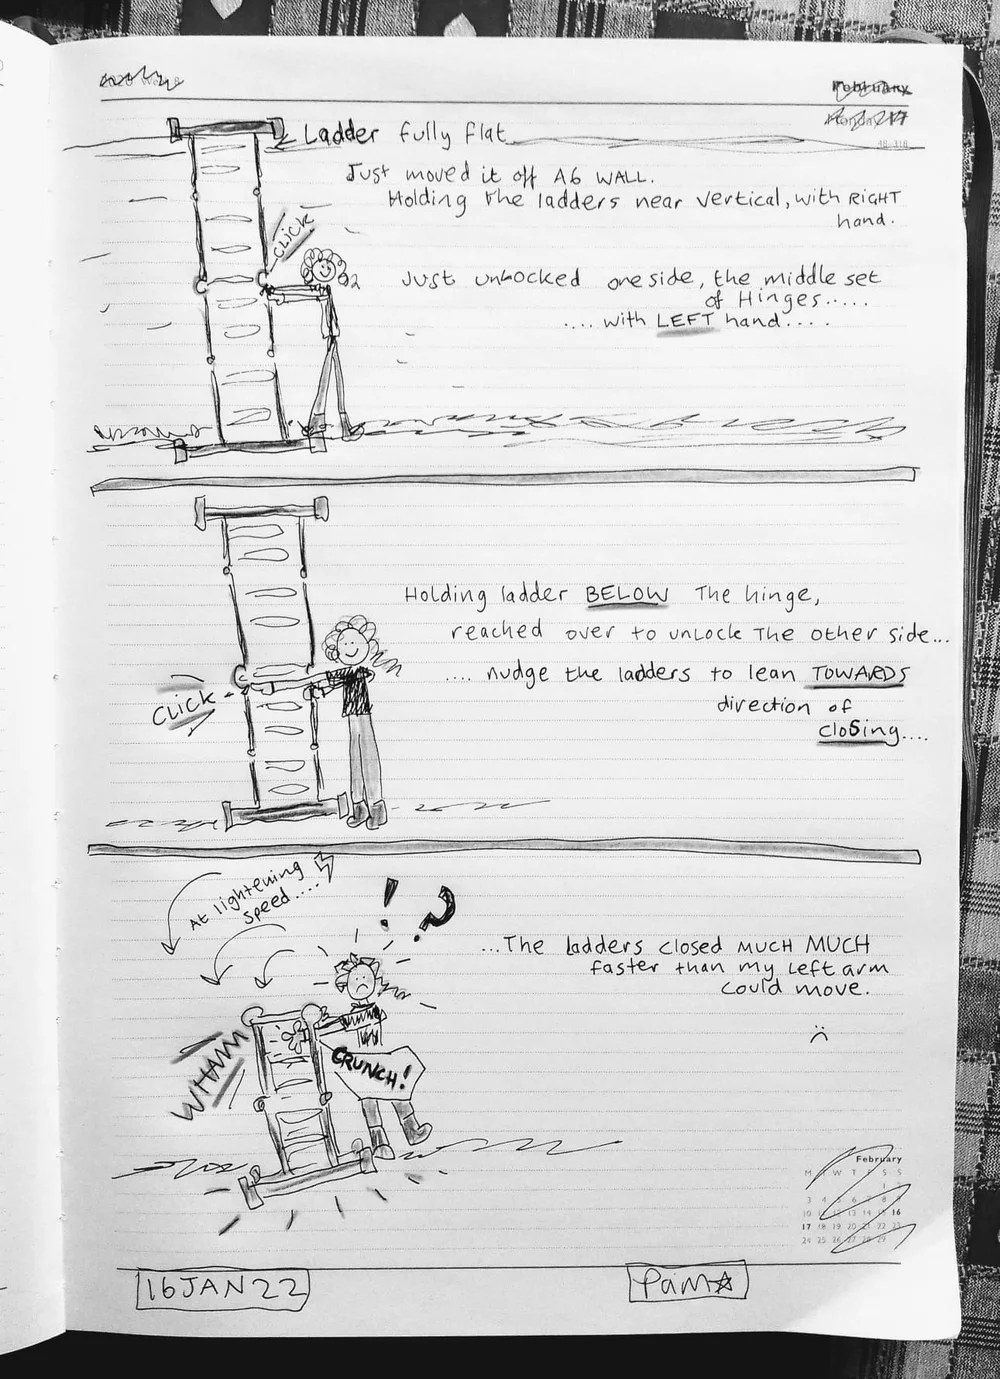 February
Monday 17
48-318
Ladder fully flat
Just moved it off A6 WALL.
Holding the ladders near vertical, with RIGHT
hand.
CLICK
Just unlocked one side, the middle set
of Hinges.....
.... with LEFT hand....
Holding ladder BELOW The hinge,
reached over to unlock The other side...
.... nudge the ladders to lean TOWARDS
direction of
closing....
CLICK
At lightening
speed....
! ?
...The ladders closed MUCH MUCH
faster than my left arm
could move.
WHAM
CRUNCH!
:(
February
M W T S S
3 4 5 6 7 8
10 12 13 14 15 16
17 18 19 20 21 22 23
24 25 26 27 28 29
16 JAN 22
Pam